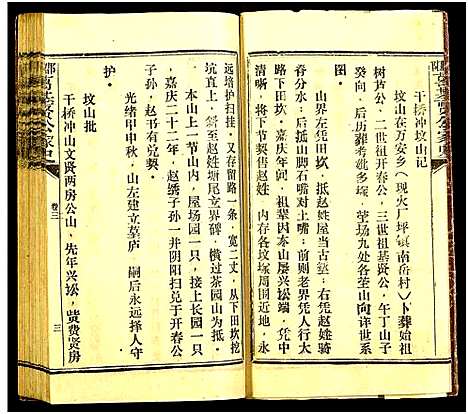 干桥冲坟山记
坟山在万安乡（现火厂坪镇南岳村）卜葬始祖
树芦公，二世祖开春公，三世祖基贤公，午丁山子
癸向，后历葬考妣多塚，茔场九处各茔山向尝
图。
山界左凭卯坑，抵赵姓屋当古
右凭赵姓骑
路下田坎，抵山脚石嘴对上嘴；前则老界凭人行大
界分水，嘉庆年间，祖辈因东山屡兴讼端，凭中
清晰，将下田坎
山内存各坟塚周围近地，永
远培护扫挂，又存留路一条，宽二丈，从下田坎挖
坑直上，斜至赵姓塘尾立界碑，横过茶园一只
本山上一节山内，屋场园一只，接上长园一只
，嘉庆二十二年，赵绣子孙一并阴阳扫兑于开春公
子孙，赵书有兑契。
光绪甲申秋，山左建立墓庐
嗣后永远择人守
护。
坟山批
干桥冲山文贤两房公山，先年兴讼，赀费贤房
卷三
三